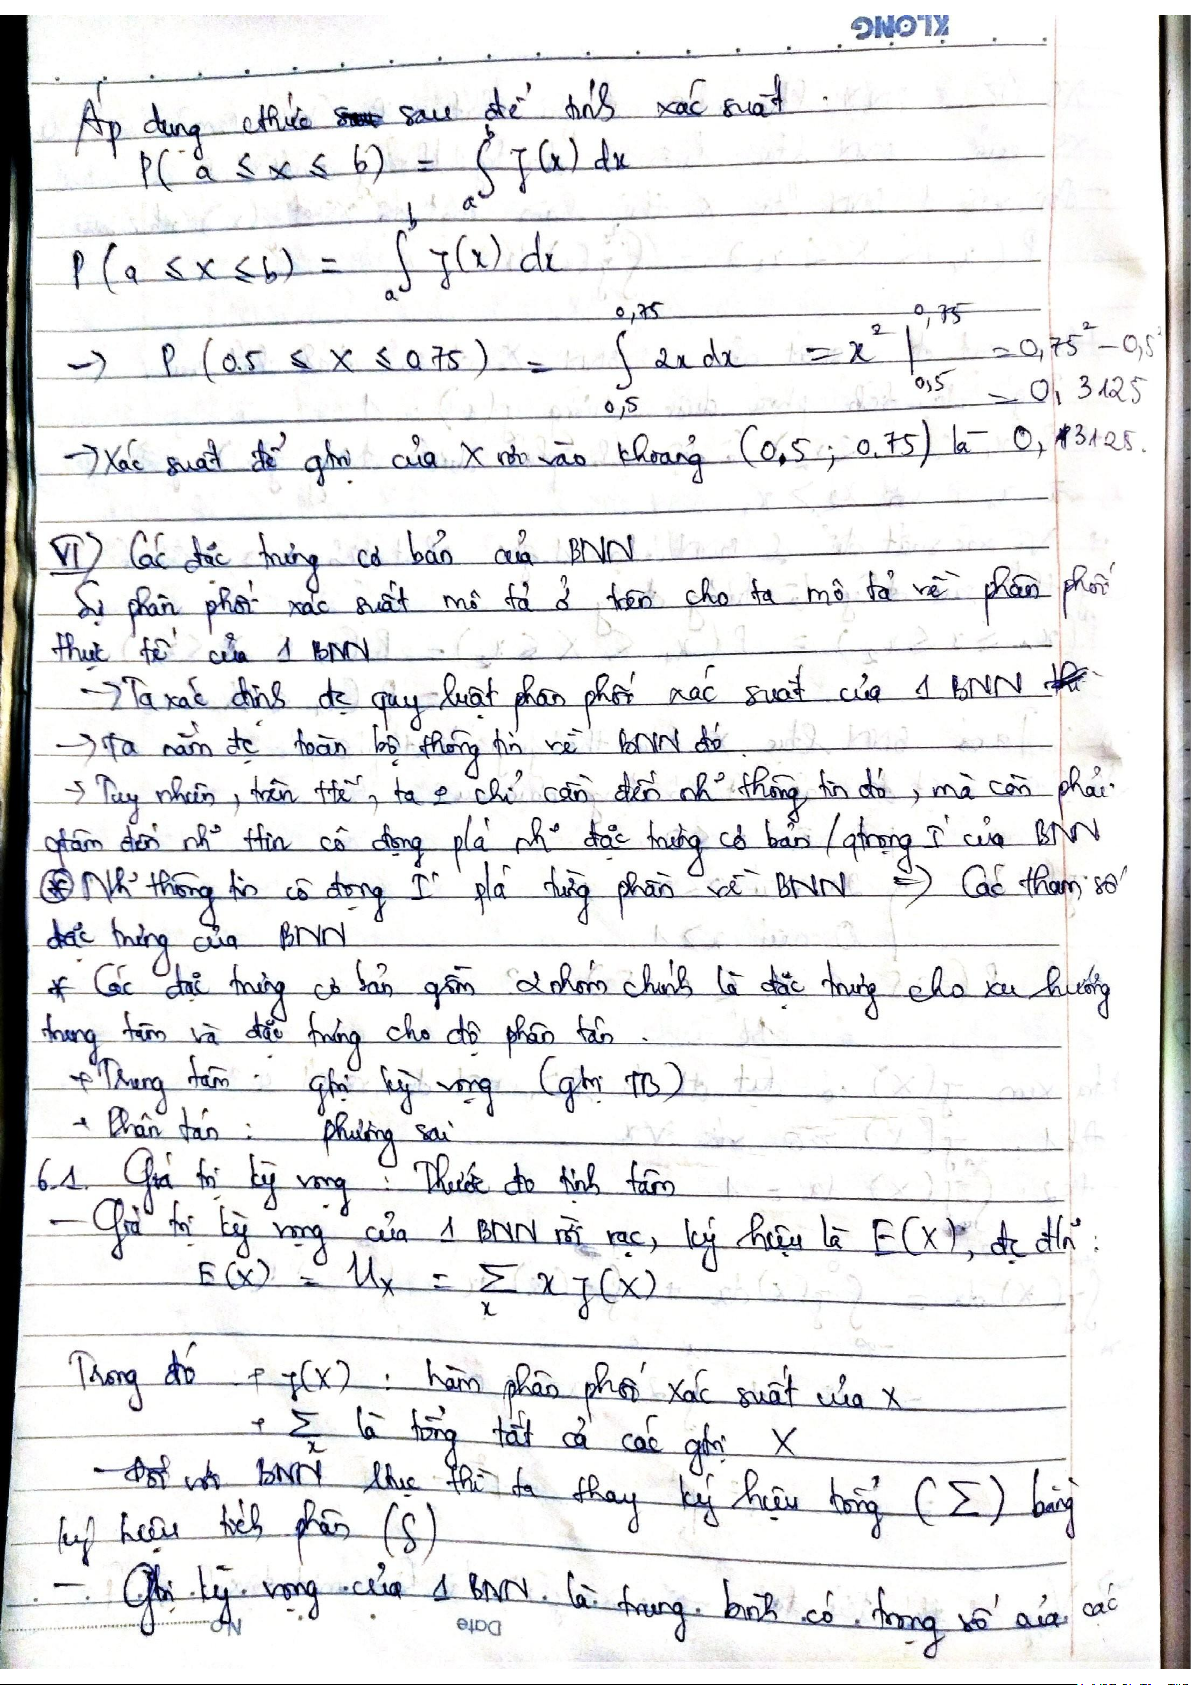 KLONG
Áp dụng cthức sau để tính xác suất :
P( a ≤ x ≤ b) = ∫ₐᵇ f(x) dx
P ( a ≤ x ≤ b) = ∫ₐᵇ f(x) dx
→ P (0.5 ≤ X ≤ 0.75) = ∫ 0,5 0,75 2x dx = x² | 0,5 0,75 = 0,75² – 0,5²
= 0, 3125
→ Xác suất để gtrị của X rơi vào khoảng (0.5 ; 0.75) là 0, 3125.
VI) Các đặc trưng cơ bản của BNN
Sự phân phối xác suất mô tả ở trên cho ta mô tả về phân phối
thực tế của 1 BNN
→ Ta xác định đc quy luật phân phối xác suất của 1 BNN
→ Ta nắm đc toàn bộ thông tin về BNN đó.
→ Tuy nhiên, trên ttế, ta chỉ cần đến nh~ thông tin đó, mà còn phải
qtâm đến nh~ ttin cô đọng p/á nh~ đặc trưng cơ bản / qtrọng I của BNN
* Nh~ thông tin cô đọng I p/á từng phần về BNN => Các tham số
đặc trưng của BNN
* Các đặc trưng cơ bản gồm 2 nhóm chính là đặc trưng cho xu hướng
trung tâm và đặc trưng cho độ phân tán.
+ Trung tâm : gtrị kỳ vọng (gtrị TB)
+ Phân tán : phương sai
6.1. Giá trị kỳ vọng : Thước đo định tâm
– Giá trị kỳ vọng của 1 BNN rời rạc, ký hiệu là E(X), đc đ/n :
E(X) = μₓ = Σₓ x f(X)
Trong đó + f(X) : hàm phân phối xác suất của X
+ Σₓ là tổng tất cả các gtrị X
– Đối với BNN ltục thì ta thay ký hiệu tổng (Σ) bằng
ký hiệu tích phân (∫)
– Gtrị kỳ vọng của 1 BNN là trung bình có trọng số của các
No Date